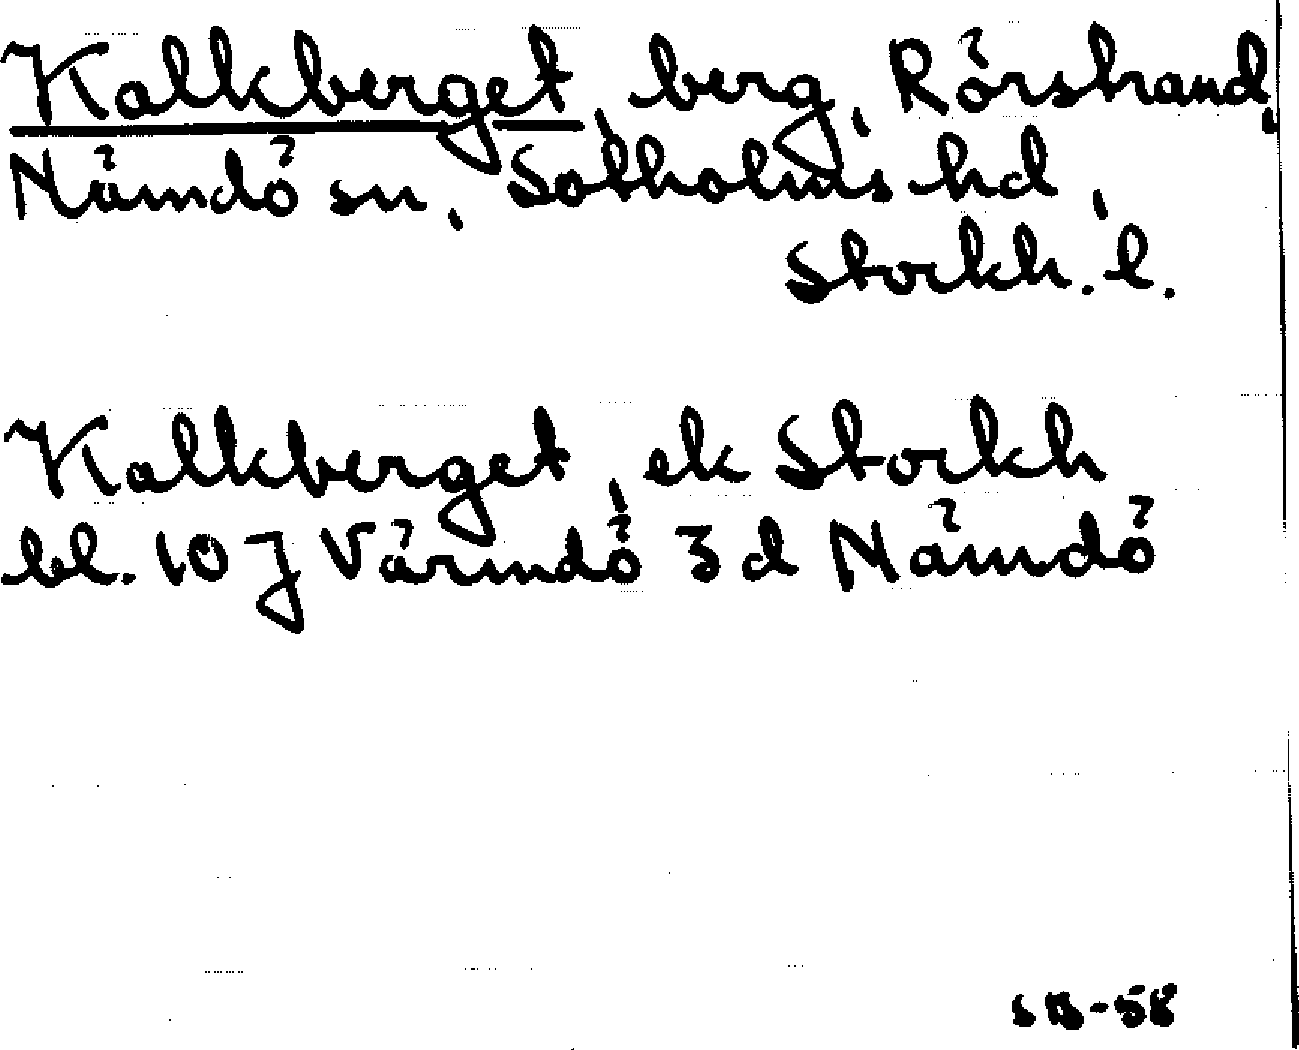 Kalkberget, berg, Rörstrand,
Nämdö sn, Sotholms hd,
Stockh. l.
Kalkberget, ek Stockh
bl. 10 J Värmdö 3 d Nämdö